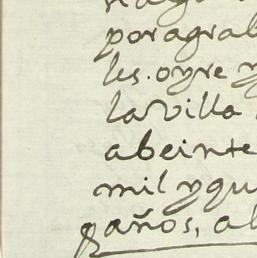 poragrab
les. oyre y
la Villa
abeinte
mil yqu
años, al